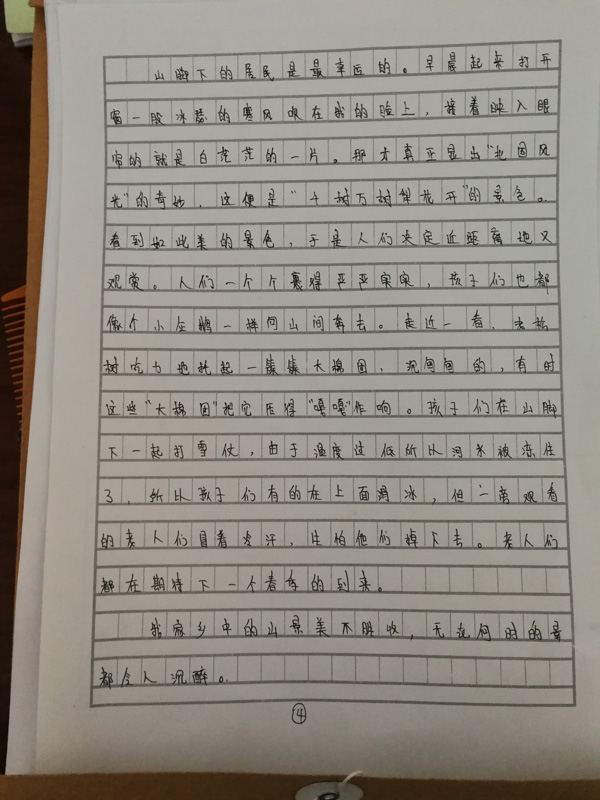 山脚下的居民是最幸运的。早晨起来打开
窗一股冰凉的寒风吹在我的脸上，接着映入眼
帘的就是白茫茫的一片。那才真正显出“北国风
光”的奇妙，这便是“千树万树梨花开”的景色。
看到如此美的景色，于是人们决定近距离地又
观赏。人们一个个裹得严严实实，孩子们也都
像个小企鹅一样向山间奔去。走近一看，老松
树吃力地托起一簇簇大棉团，沉甸甸的，有时
这些“大棉团”把它压得“嘎嘎”作响。孩子们在山脚
下一起打雪仗，由于温度过低所以河水被冻住
了，所以孩子们有的在上面滑冰，但一旁观看
的老人们冒着冷汗，生怕他们掉下去。老人们
都在期待下一个春季的到来。
我家乡中的山景美不胜收，无论何时的景
都令人沉醉。
④